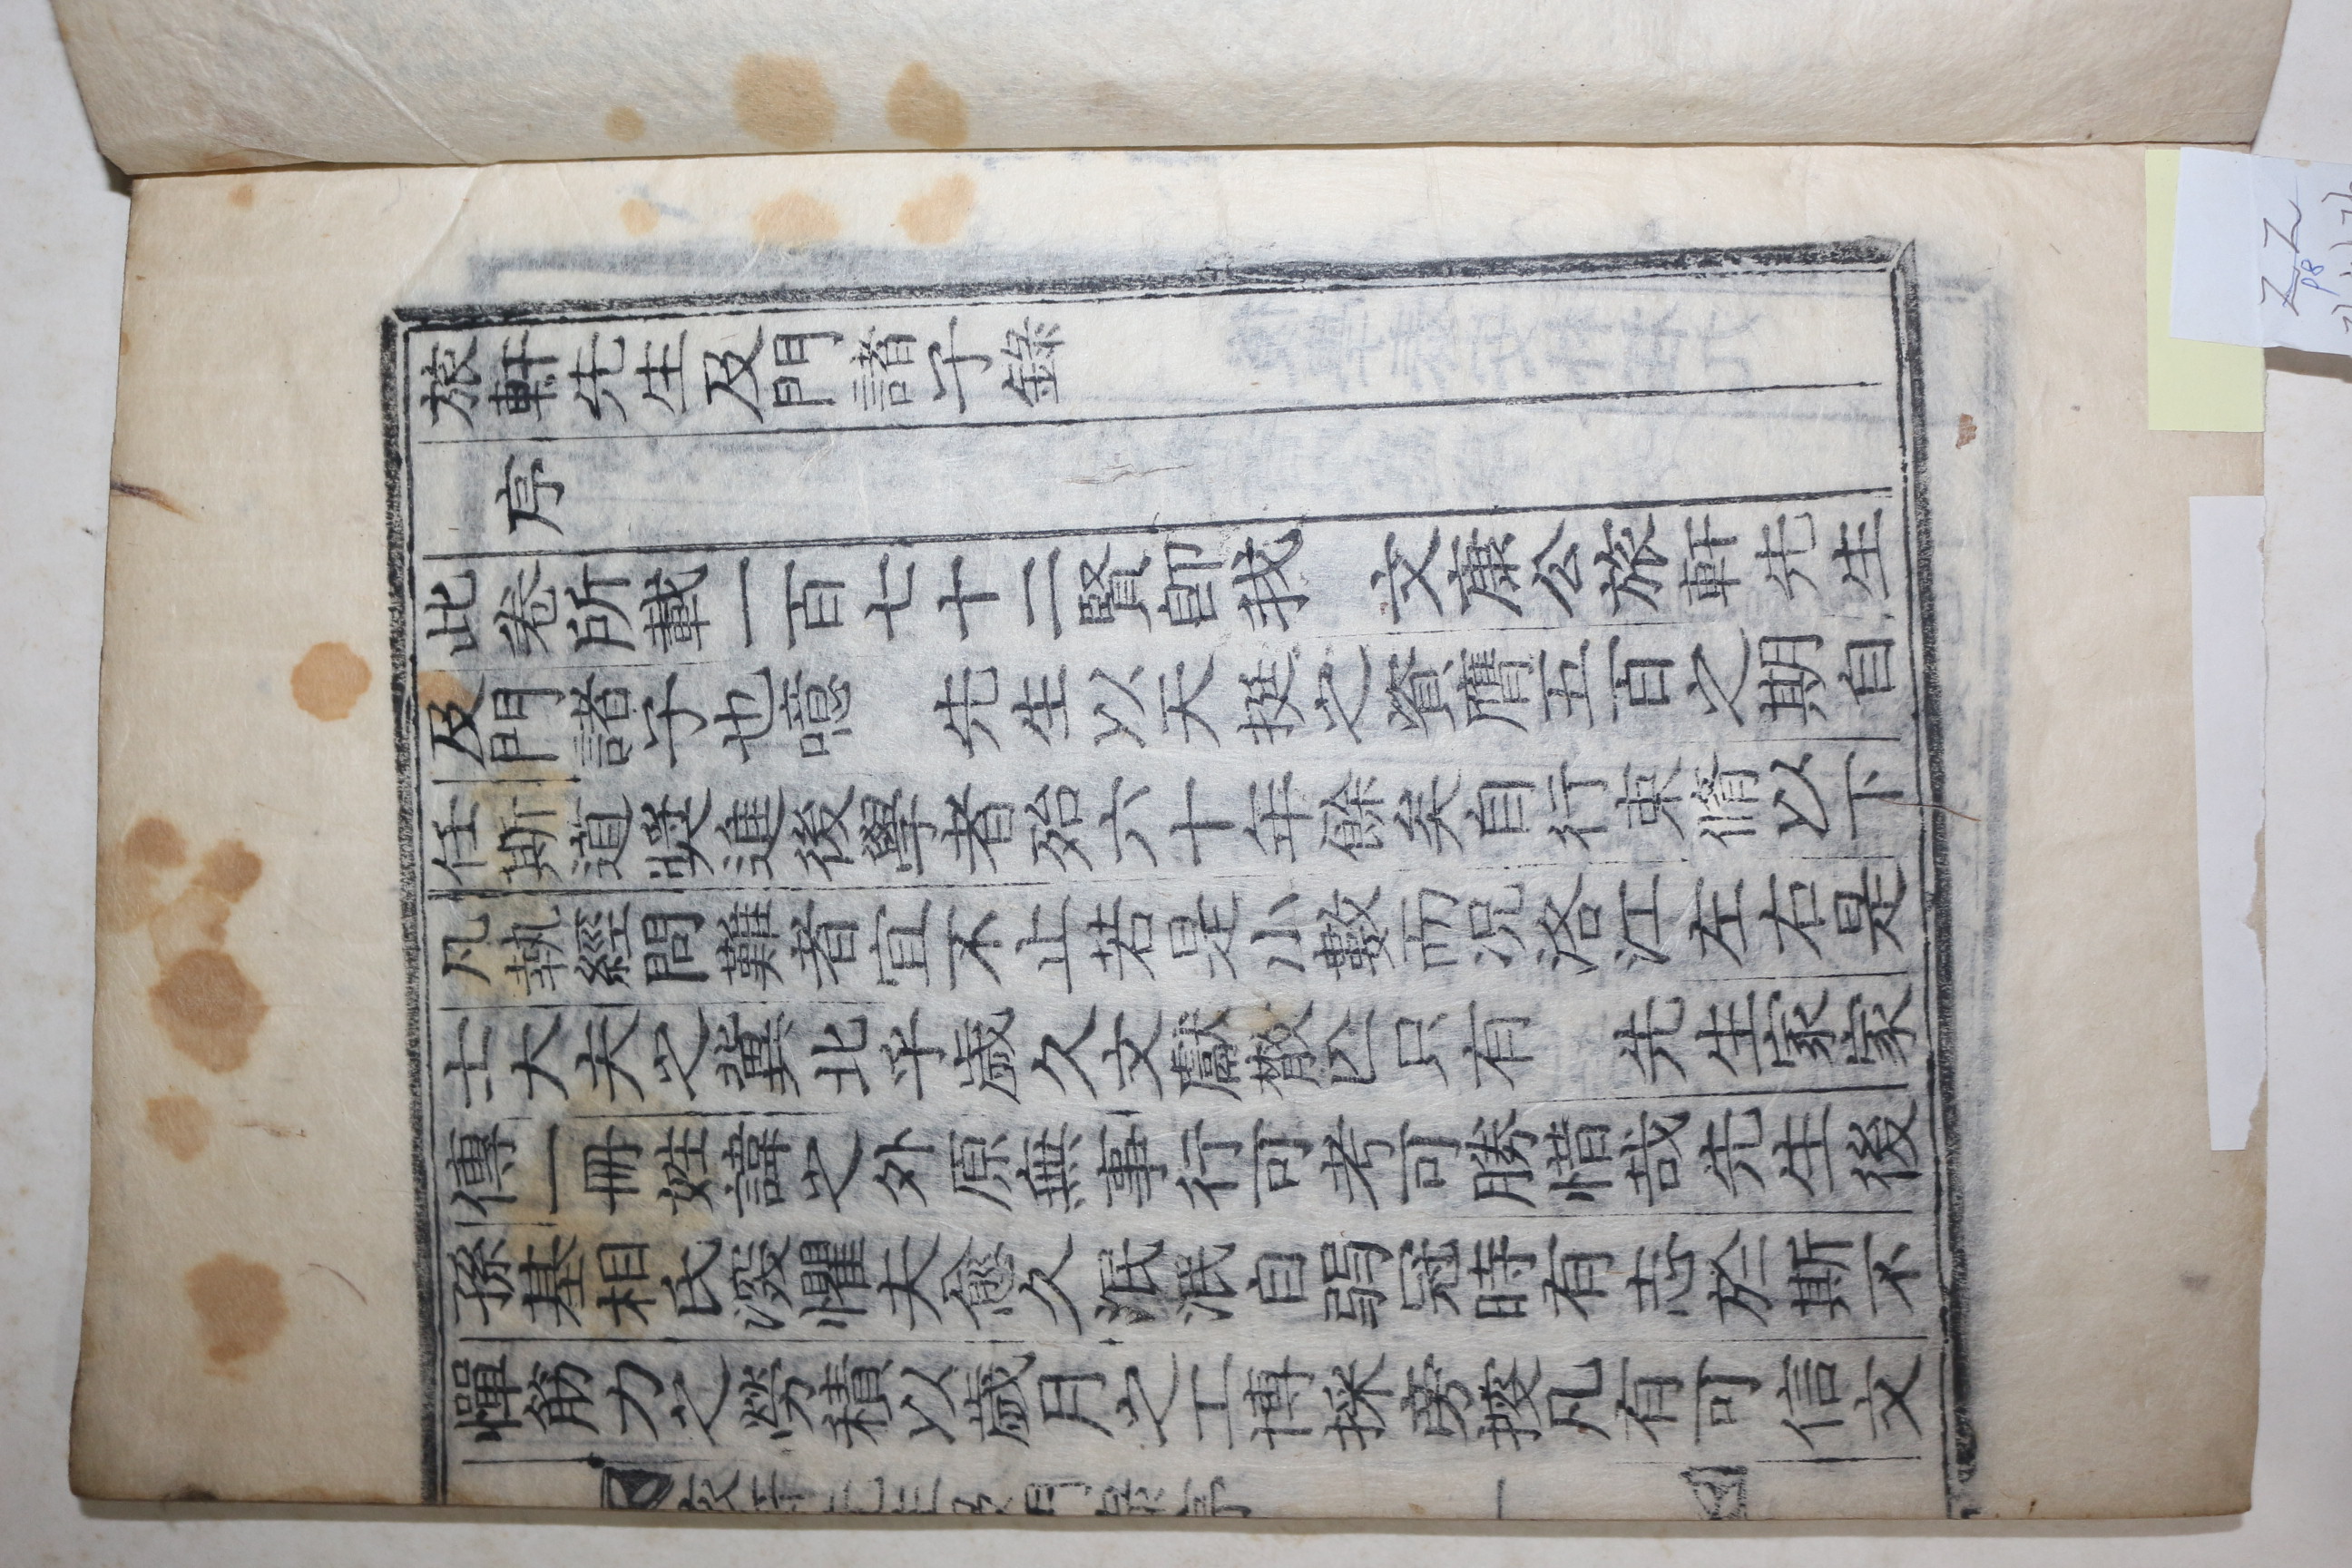 旅軒先生及門諸子錄
序
此卷所載一百七十二賢卽我　文康公旅軒先生
及門諸子也噫　先生以天挺之資膺五百之期自
任斯道奬進後學者殆六十年餘矣自行束脩以下
凡執經問難者宜不止若是小數而况洛江左右是
士大夫之冀北乎歲久文獻散亾只有　先生家家
傳一冊姓諱之外原無事行可考可勝惜哉先生後
孫基相氏深懼夫愈久泯泯自弱冠時有志於斯不
憚筋力之勞積以歲月之工博採旁搜凡有可信文
一
ZZ
P8